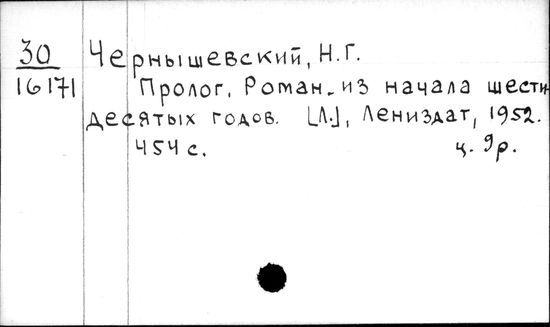 30 Чернышевский, Н.Г.
16171 Пролог. Роман из начала шести-
десятых годов. [Л.], Лениздат, 1952.
454 с. ц. 9р.